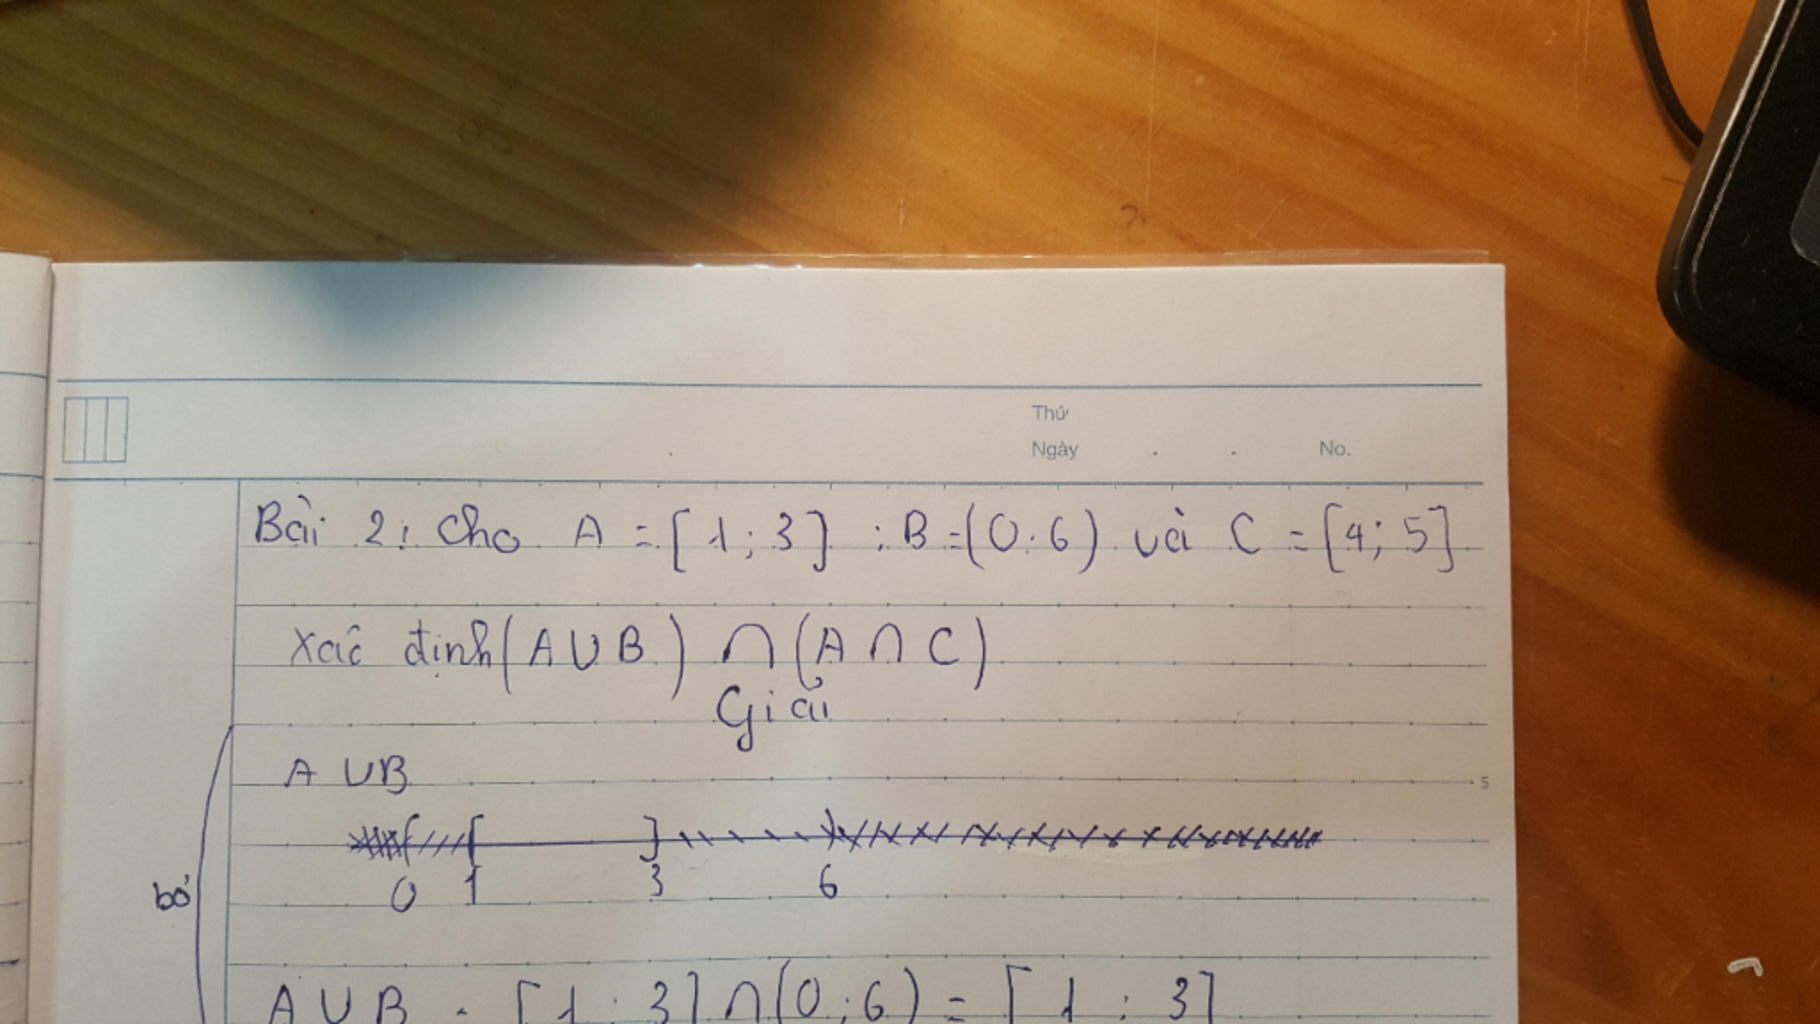 Thứ
Ngày . . No.
Bài 2: Cho A = [1; 3] ; B = (0; 6) và C = [4; 5]
Xác định (A ∪ B) ∩ (A ∩ C)
Giải
A ∪ B
5
0 1 3 6
bỏ
A ∪ B = [1; 3] ∩ (0; 6) = [1; 3]